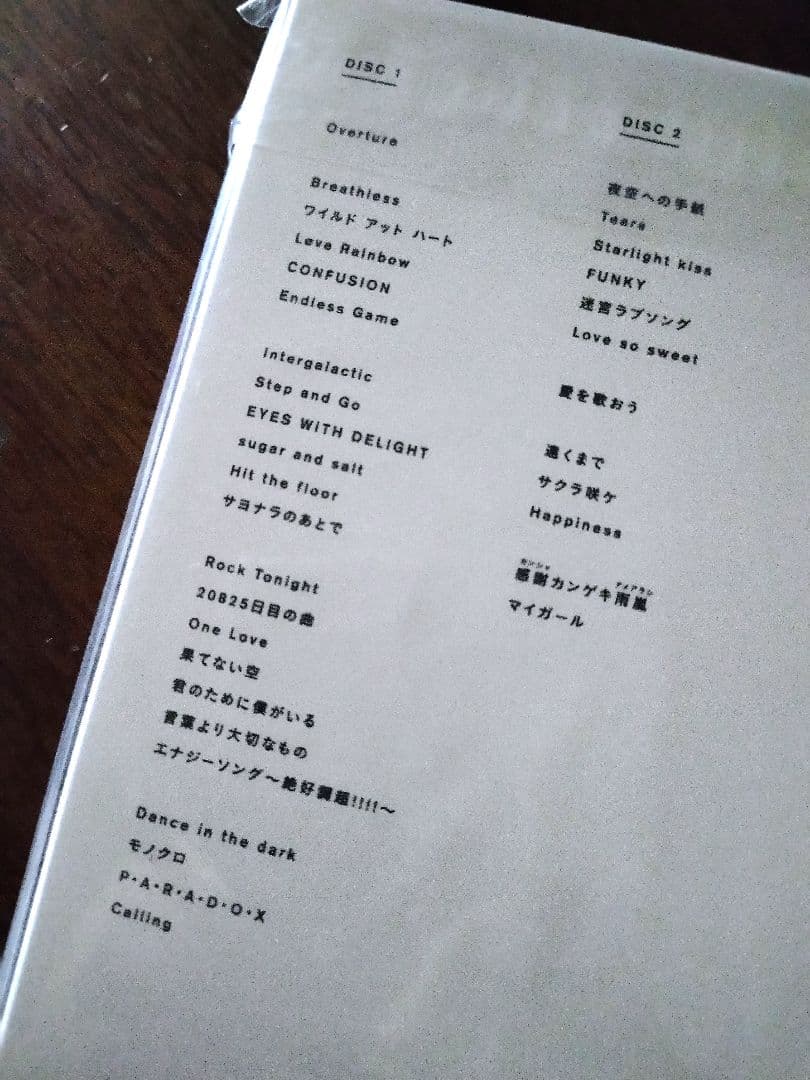 DISC 1
Overture
Breathless
ワイルド アット ハート
Løve Rainbow
CONFUSION
Endless Game
Intergalactic
Step and Go
EYES WITH DELIGHT
sugar and salt
Hit the floor
サヨナラのあとで
Rock Tonight
20825日目の曲
One Love
果てない空
君のために僕がいる
言葉より大切なもの
エナジーソング〜絶好調超!!!!〜
Dance in the dark
モノクロ
P・A・R・A・D・O・X
Calling
DISC 2
夜空への手紙
Tears
Starlight kiss
FUNKY
迷宮ラブソング
Love so sweet
愛を歌おう
遠くまで
サクラ咲ケ
Happiness
カンシャ アメアラシ
感謝カンゲキ雨嵐
マイガール